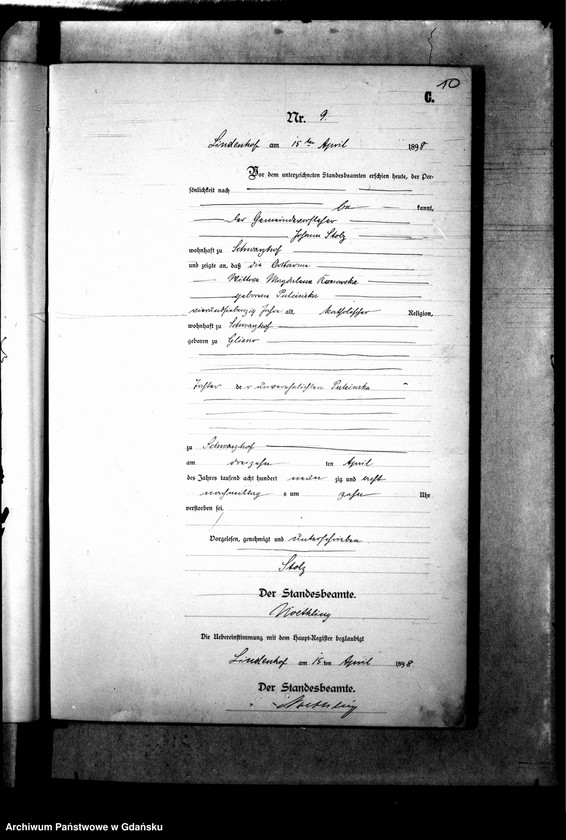 10
C.
Nr. 9.
Lindenhof am 15ten April 1898
Vor dem unterzeichneten Standesbeamten erschien heute, der Per-
sönlichkeit nach
be kannt,
der Gemeindevorsteher
Johann Stolz
wohnhaft zu Schwarzhof
und zeigte an, daß die Ortsarme
Wittwe Magdalena
geborene Pulcinska
vierundsiebenzig Jahre alt, katholischer Religion,
wohnhaft zu Schwarzhof
geboren zu Gliano
Tochter der unverehelichten Pulcinska
zu Schwarzhof
am dreizehn ten April
des Jahres tausend acht hundert neun zig und acht
nachmittag s um zehn Uhr
verstorben sei.
Vorgelesen, genehmigt und unterschrieben
Stolz
Der Standesbeamte.
Noethling
Die Uebereinstimmung mit dem Haupt-Register beglaubigt
Lindenhof am 15 ten April 1898.
Der Standesbeamte.
Noethling
Archiwum Państwowe w Gdańsku